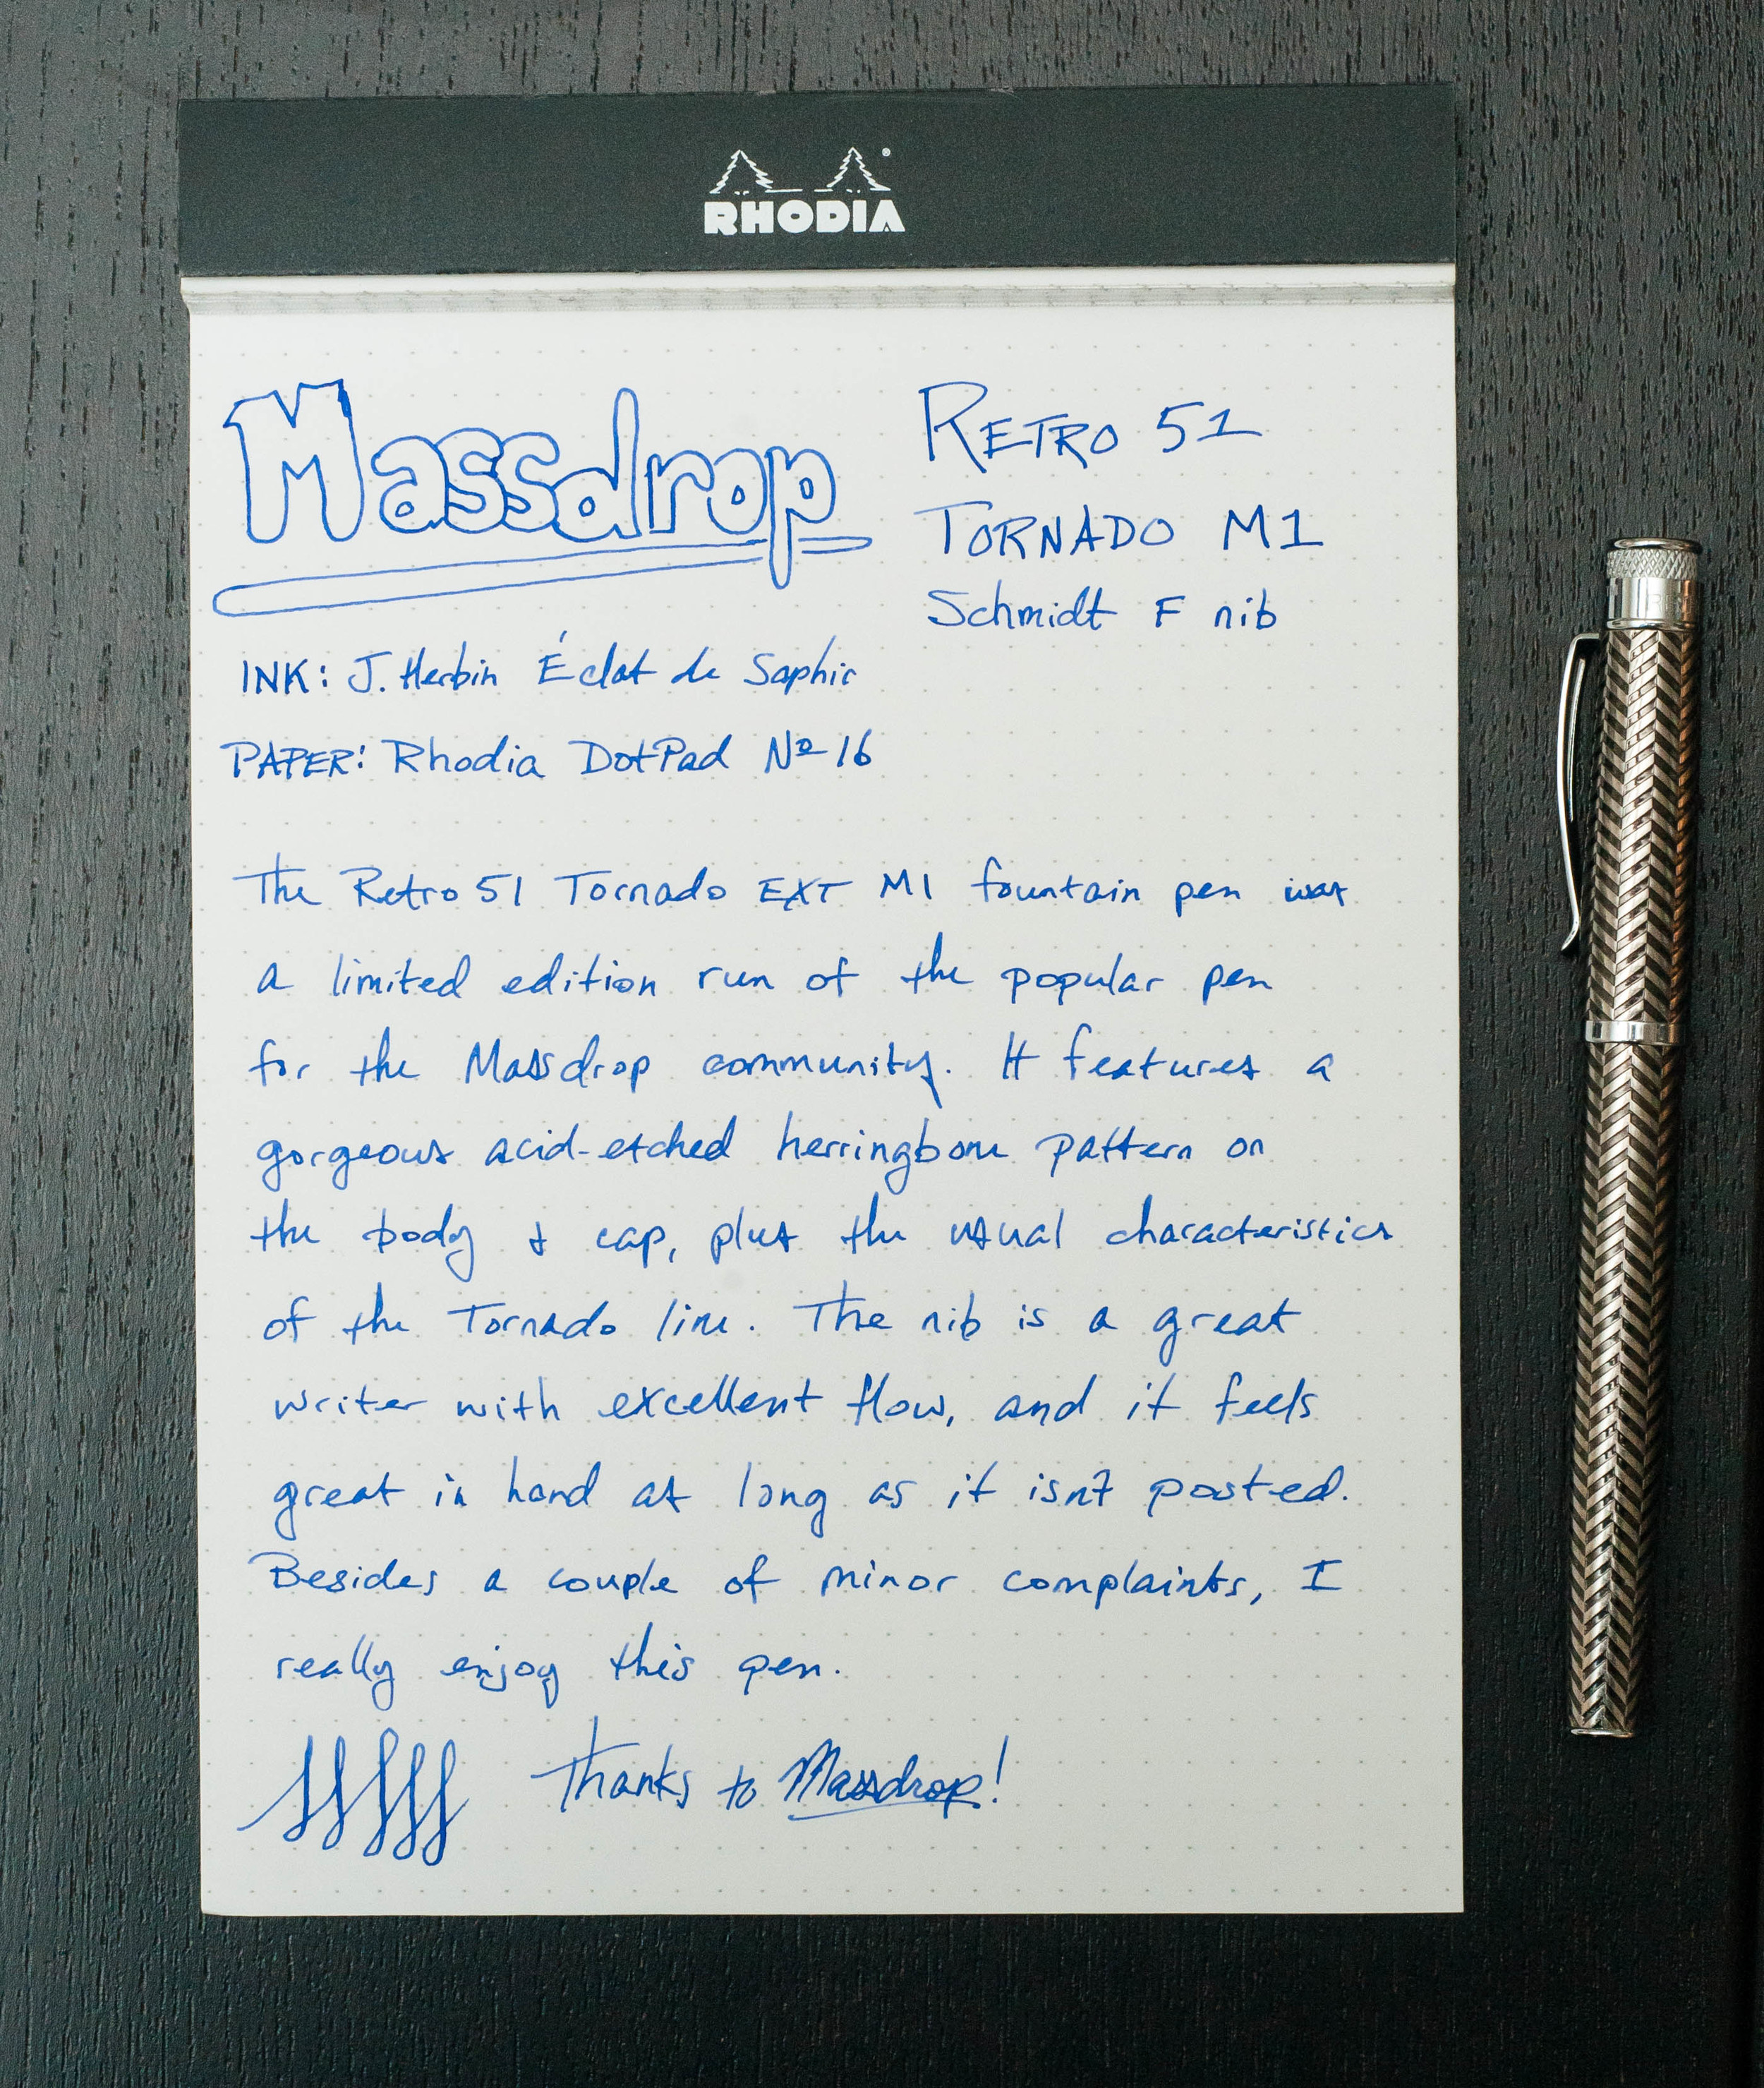 RHODIA
Massdrop
RETRO 51
TORNADO M1
Schmidt F nib
INK: J. Herbin Éclat de Saphir
PAPER: Rhodia DotPad Nº 16
The Retro 51 Tornado EXT M1 fountain pen was
a limited edition run of the popular pen
for the Massdrop community. It features a
gorgeous acid-etched herringbone pattern on
the body & cap, plus the usual characteristics
of the Tornado line. The nib is a great
writer with excellent flow, and it feels
great in hand as long as it isn't posted.
Besides a couple of minor complaints, I
really enjoy this pen.
Thanks to Massdrop!